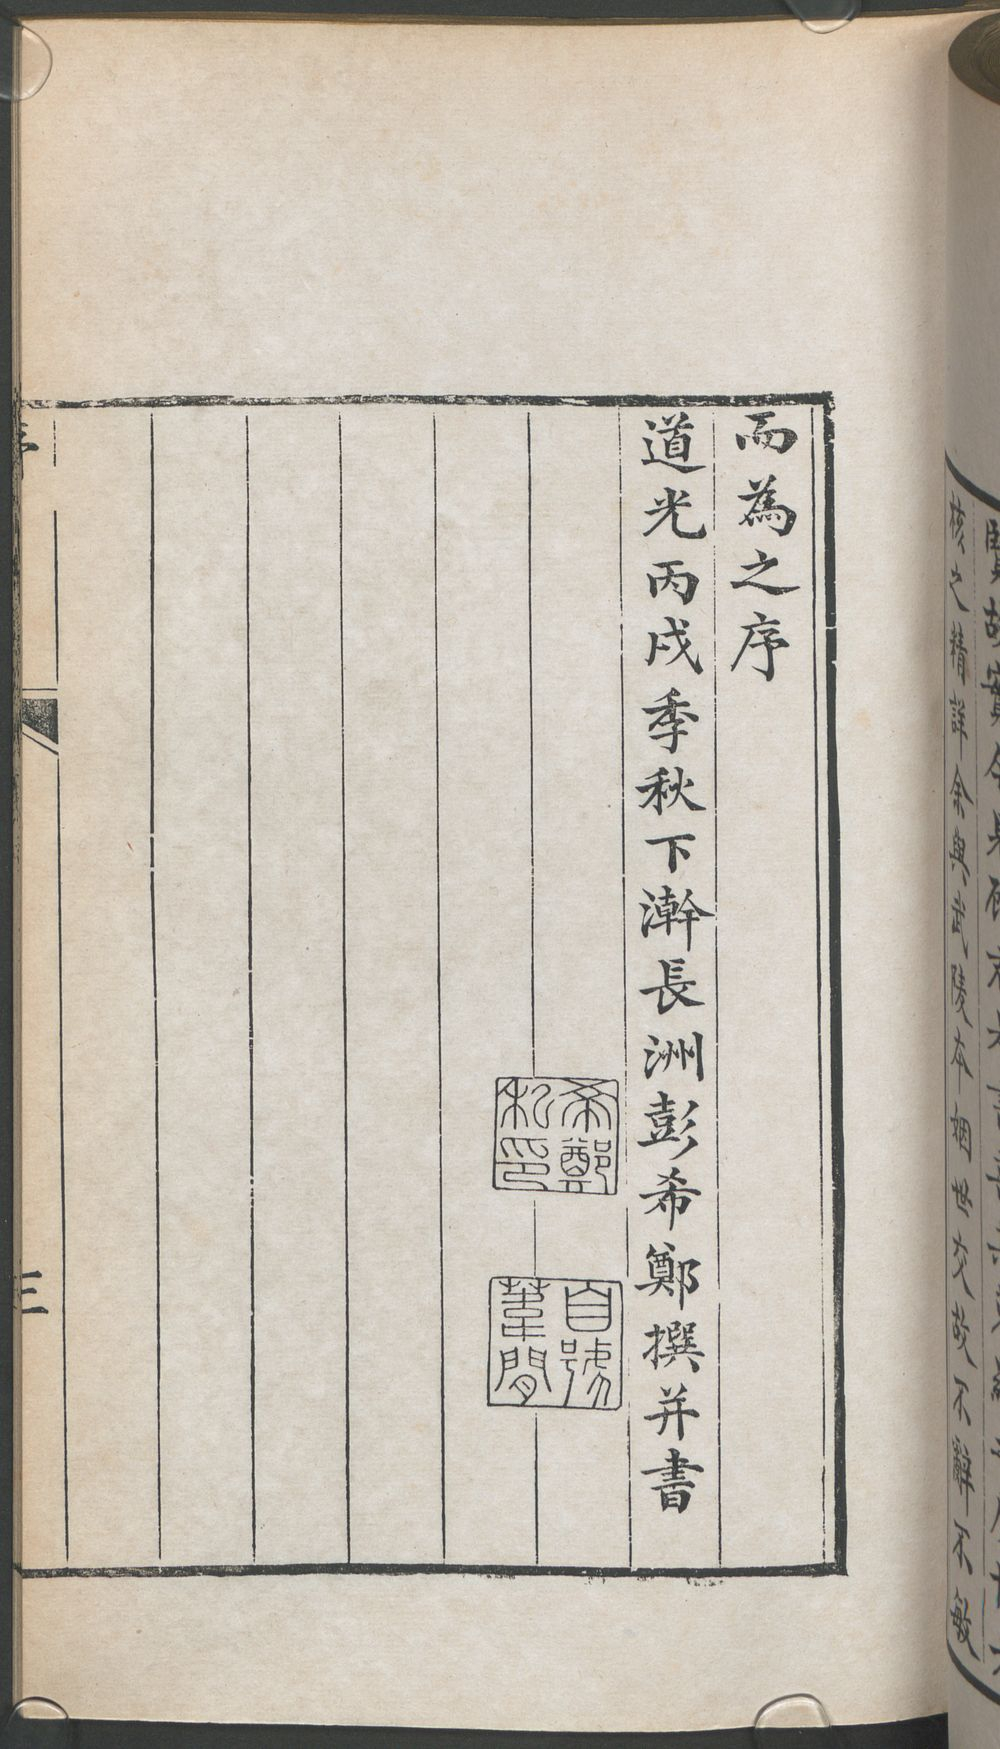 核之精詳余與武陵本姻世交故不辭不敏
而為之序
道光丙戌季秋下澣長洲彭希鄭撰并書
希鄭
私印
自號
葦間
三